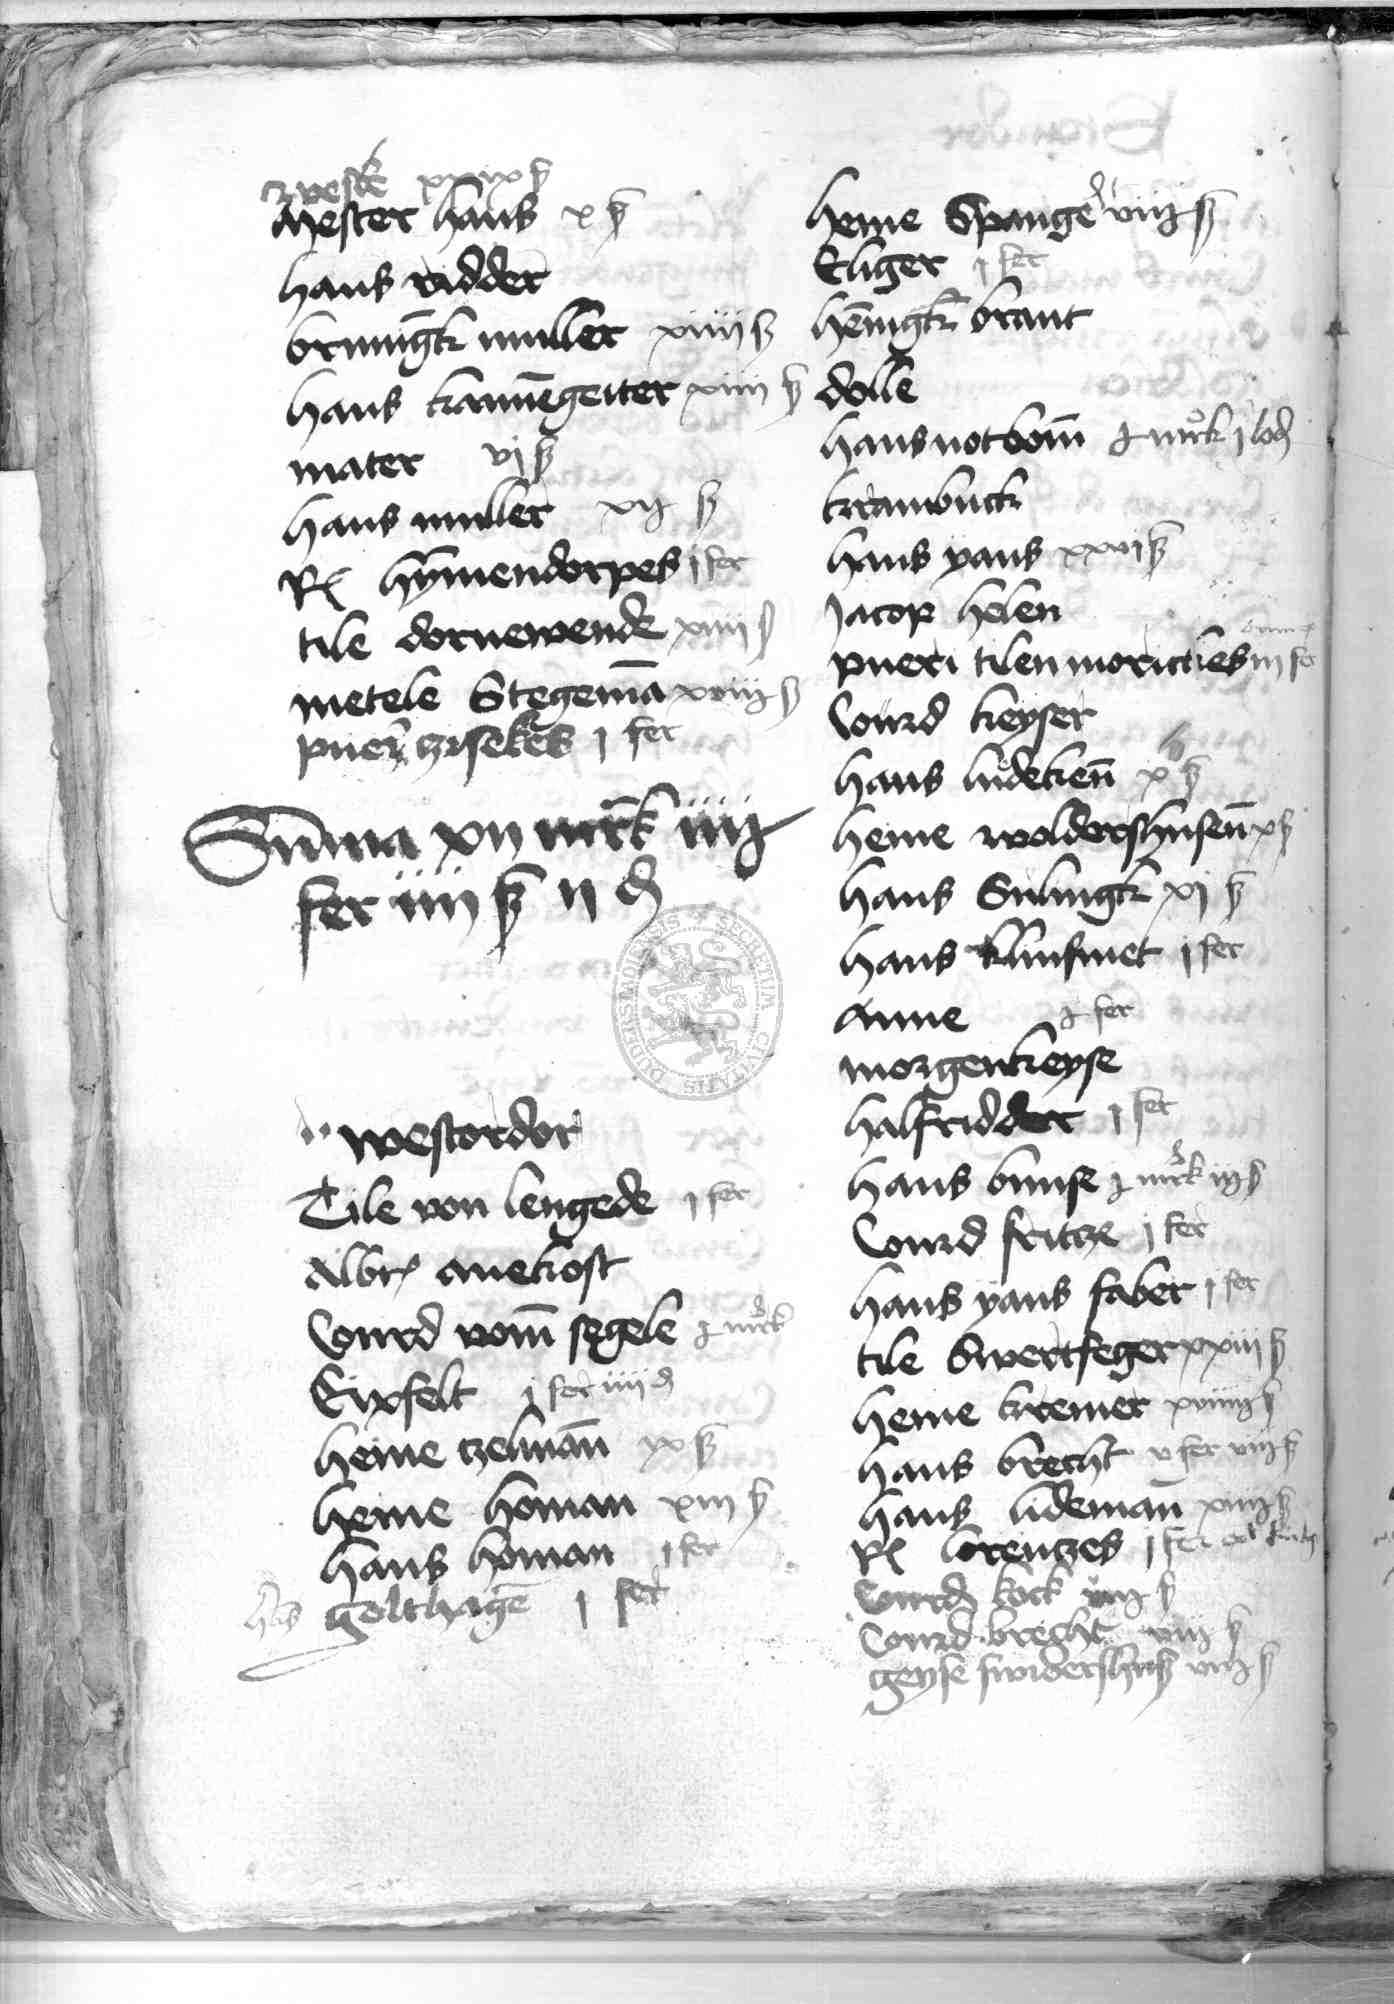 zweske xxixß
Mester hans xß
hans ridder
brunigk muller xiiiiß
hans kannegeiter xiiiiß
mater vjß
hans muller xijß
Rx hymendorpes j fer
tile dornewende xiiiiß
metele Stegeman xviijß
pueri zisekes j fer
Summa xvij mrck iiij
fer iiij ß ij d
westerdor
Tile von lengede j fer
Albr auekost
Curd vom segele j mrck
Eixfelt j fer iiij d
heine tzelman ixß
heine homan xiiiß
hans homan j fer
hans golthagen j fer
heine Spange viijß
Eliger j fer
henigk brant
dolle
hans notbom j mrck j lod
krambuck
hans yans xxvjß
Jacop helen
pueri tilen morickes iij fer
Curd keyser
hans ludeken xß
heine woldershusen xß
hans Sulingk xjß
hans klinsmet j fer
Anne j fer
morgenkeyse
halfridder j fer
hans bunse j mrck iijß
Curd fritze j fer
hans yans faber j fer
tile Swertfeger xxiiiß
heine kremer xviiijß
hans brecht v fer viijß
hans lideman xiiijß
Rx lorentzes j fer
Curd kock viijß
Curd brecht viijß
geyse viijß
DUDERSTADIENSIS SECRETUM CIVITATIS